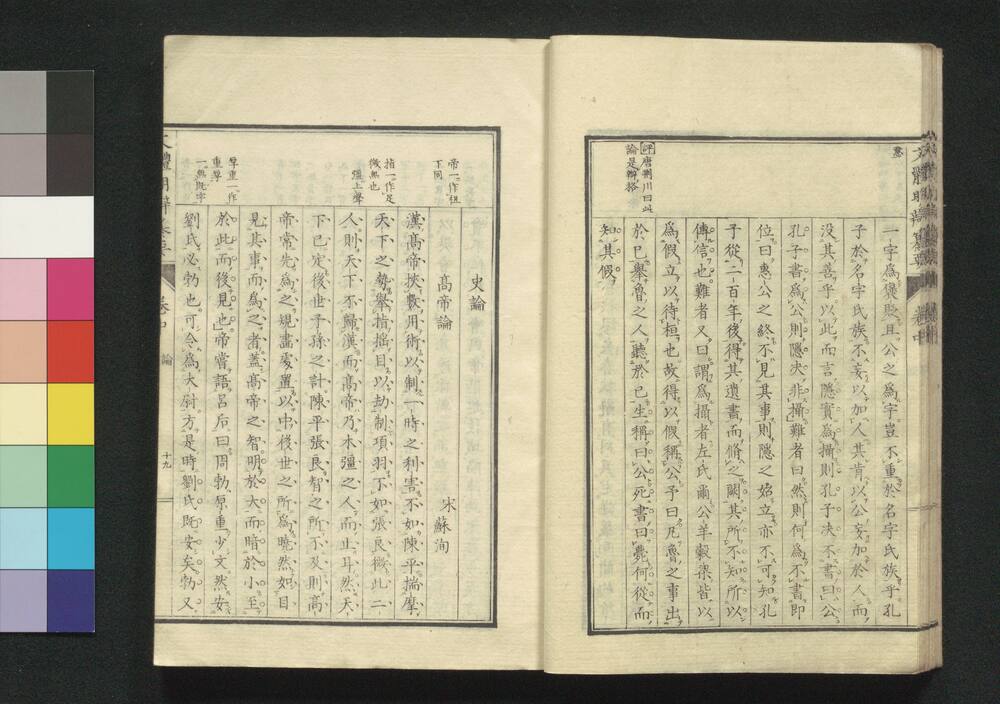 一字爲褒貶且公之爲字豈不重於名字氏族乎孔
子於名字氏族不妄以加人其肯以公妄加於人而
没其善乎以此而言隱實爲攝則孔子决不書曰公
孔子書爲公則隱决非攝難者曰然則何爲不書即
位曰惠公之終不見其事則隱之始立亦不可知孔
子從二百年後得其遺書而脩之闕其所不知所以
傳信也難者又曰謂爲攝者左氏爾公羊榖梁皆以
爲假立以待桓也故得以假稱公予曰凡魯之事出
於已舉魯之人聽於已生稱曰公死書曰薨何從而
知其假
評唐荆川曰此
論是辯格
史論
高帝論
宋蘇洵
漢高帝挾數用術以制一時之利害不如陳平揣摩
天下之勢舉指揺目以劫制項羽不如張良微此二
人則天下不歸漢而高帝乃木彊之人而止耳然天
下已定後世子孫之計陳平張良智之所不及則高
帝常先爲之規畫處置以中後世之所爲曉然如目
見其事而爲之者蓋高帝之智明於大而暗於小至
於此而後見也帝嘗語呂后曰周勃厚重少文然安
劉氏必勃也可令爲大尉方是時劉氏既安矣勃又
帝一作祖
下同
指一作足
微無也
彊上聲
厚重一作
重厚
一無既字
卷四
論
十九